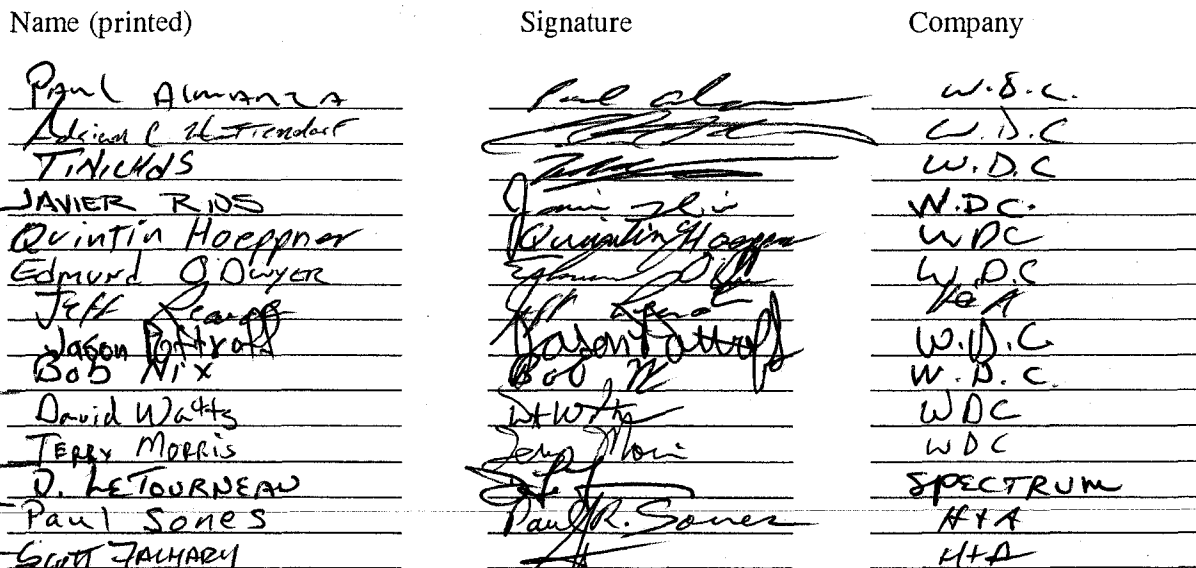 Name (printed) Signature Company
Paul Almanza Paul Alma W.D.C.
Adrian C W.D.C
T. Nichols W.D.C
JAVIER RIOS Javier Rios W.D.C.
Quintin Hoeppner Quintin Hoeppner WDC
Edmund O'Dwyer W.D.C
Jeff Jeff
Jason Pottroff Jason Pottroff W.D.C
Bob Nix Bob N W.D.C.
David Watts WDC
Terry Morris Terry Morris WDC
D. LeTourneau SPECTRUM
Paul Sones Paul R. Sones H+A
Scott Zachary H+A